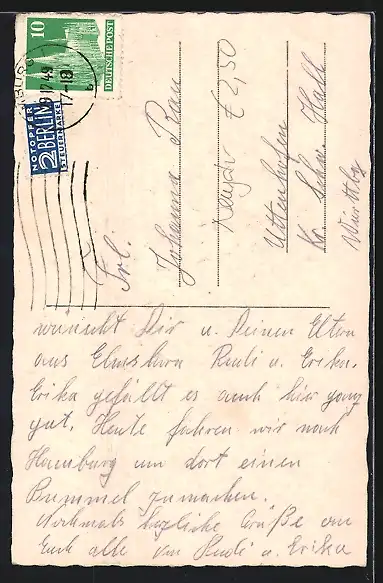 10
DEUTSCHE POST
NOTOPFER
2 BERLIN
STEUERMARKE
49
17-18
Frl.
Johanna
€ 2,50
Uttenhofen
Kr. Schw. Hall
Württbg
wünscht Dir u. Deinen Eltern
aus Elmshorn Rudi u. Erika.
Erika gefällt es auch hier ganz
gut. Heute fahren wir nach
Hamburg um dort einen
Bummel zumachen.
Nochmals herzliche Grüße an
Euch alle von Rudi u. Erika